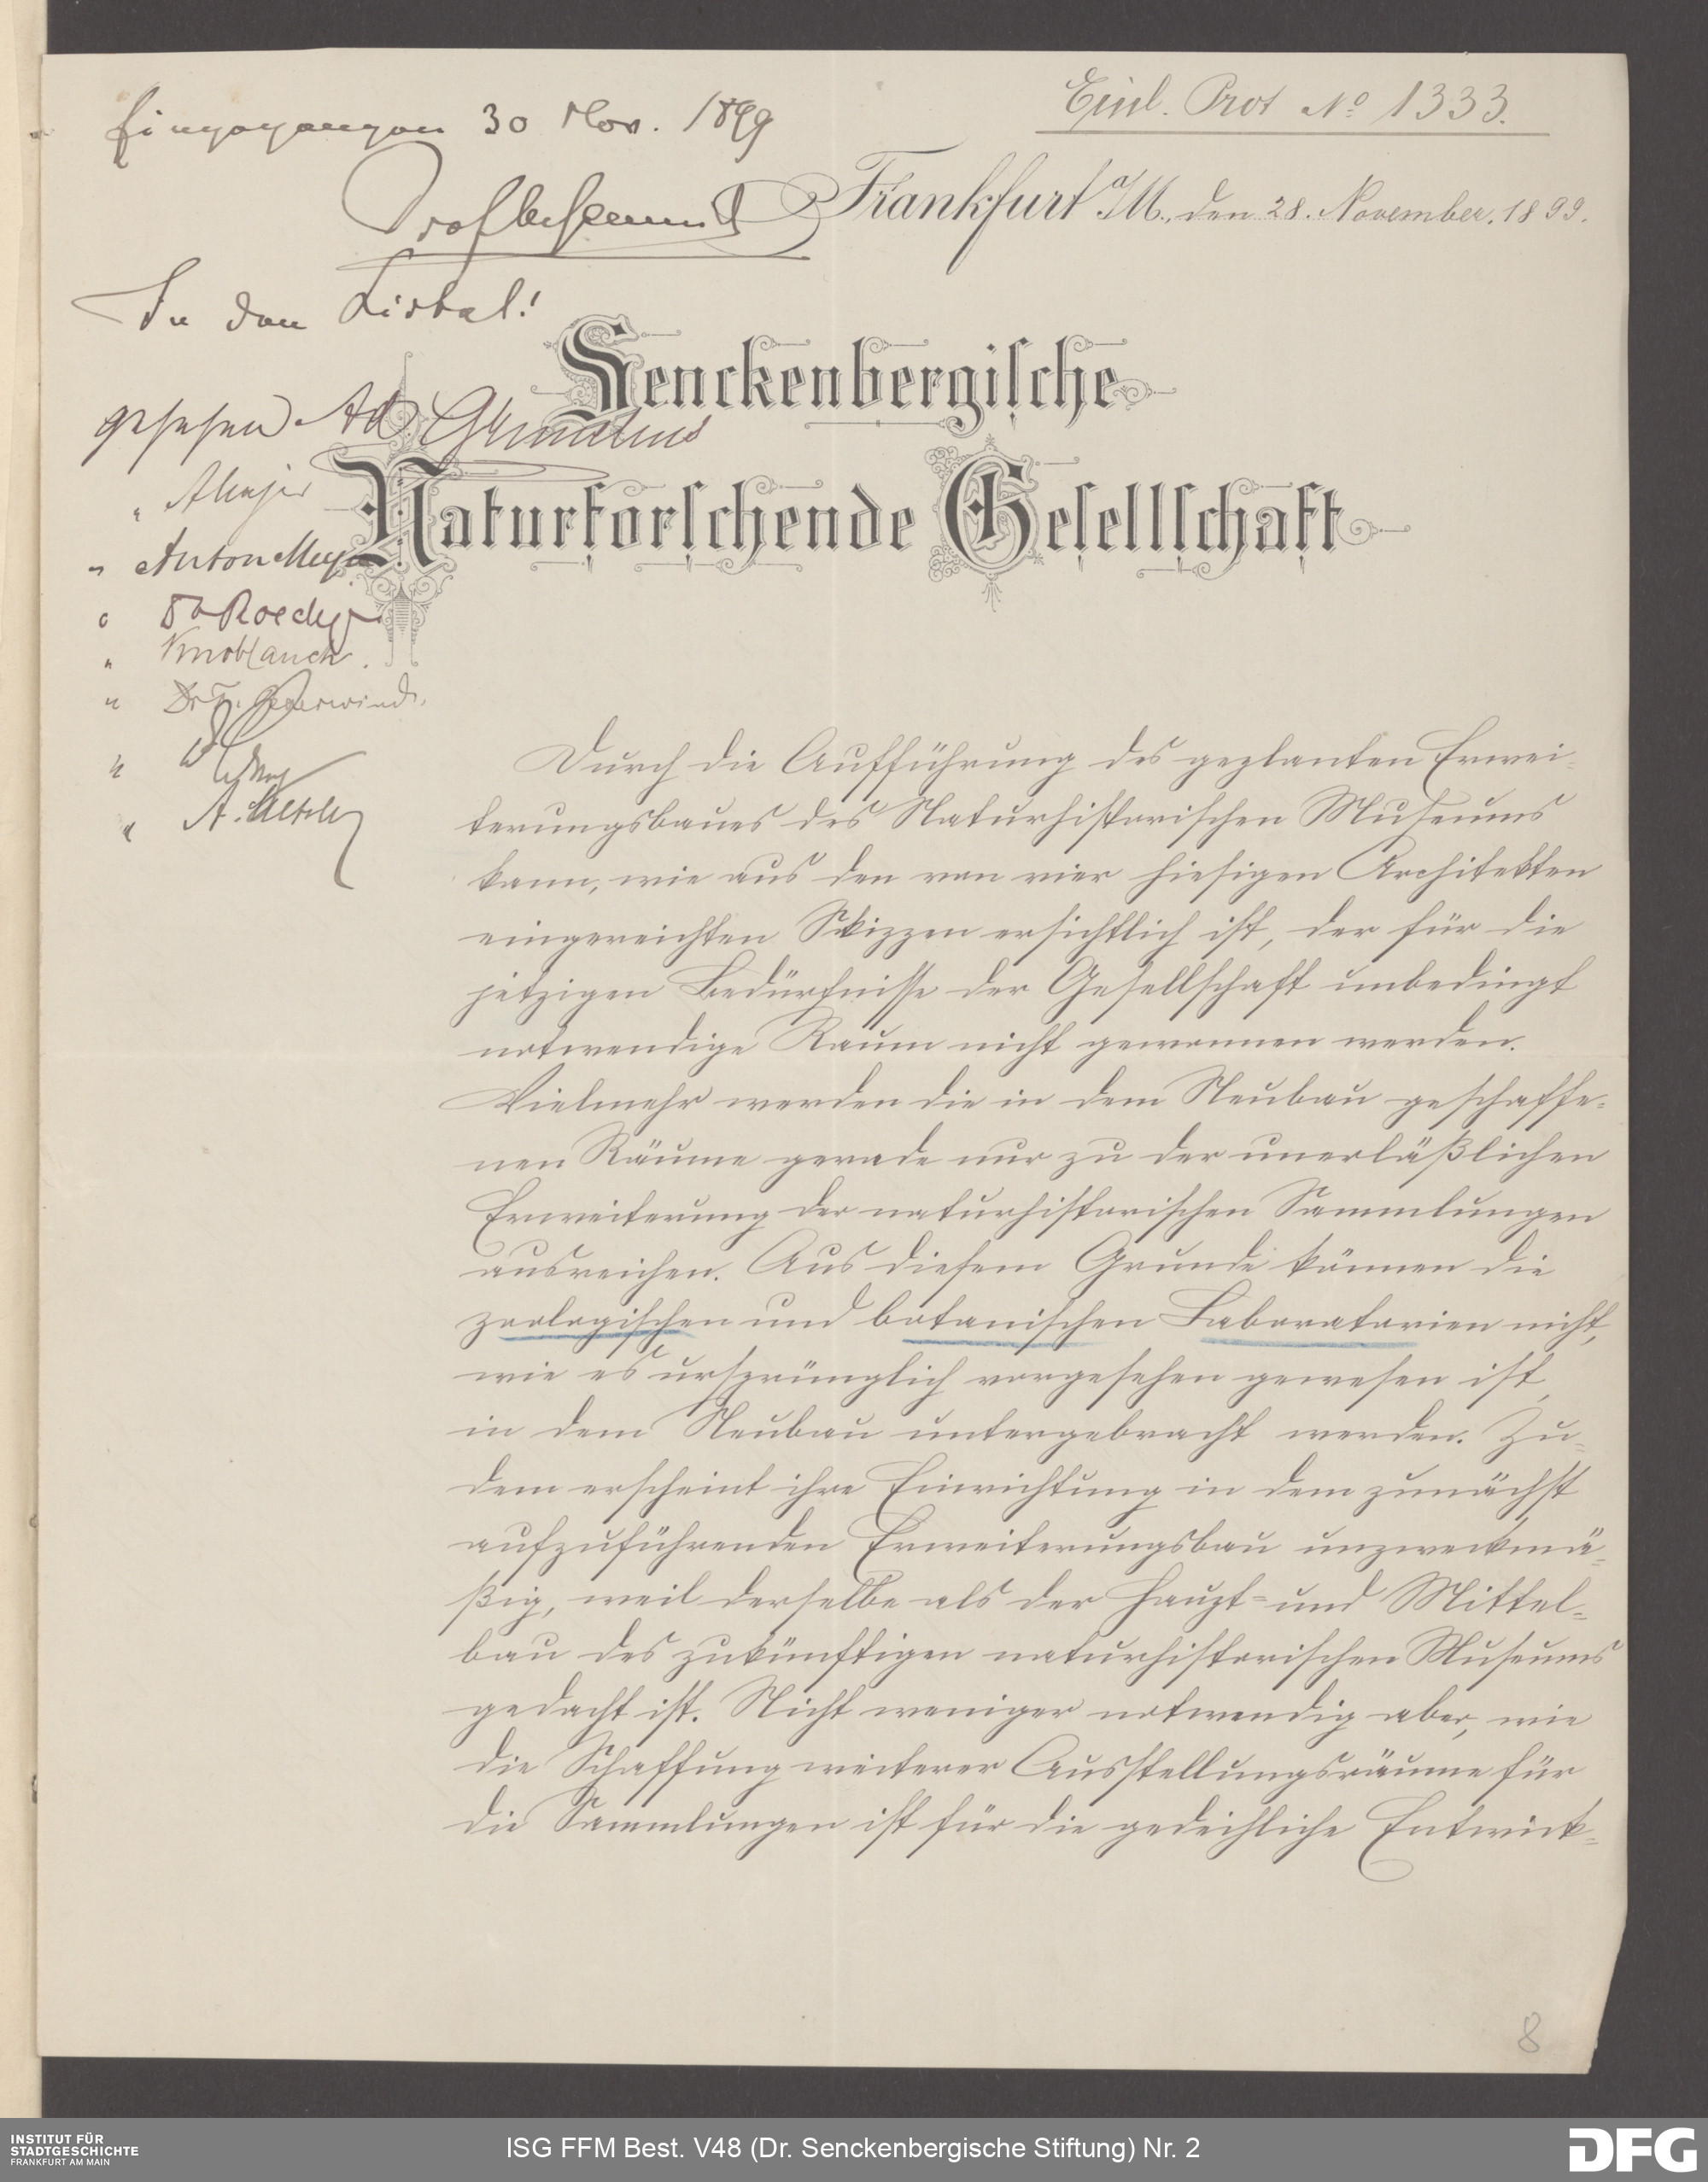 Eingegangen 30 Nov. 1899
Einl. Prot No 1333.
Frankfurt a/M., den 28. November. 1899.
In den Zirkel!
Senckenbergische
gesehen Ad.
Naturforschende Gesellschaft
" Anton Meyer
" Dr Roediger
" Knoblauch.
"
" A. Metzler
Durch die Aufführung des geplanten Erwei-
terungsbaues des Naturhistorischen Museums
kann, wie aus den von vier hiesigen Architekten
eingereichten Skizzen ersichtlich ist, der für die
jetzigen Bedürfnisse der Gesellschaft unbedingt
notwendige Raum nicht gewonnen werden.
Vielmehr werden die in dem Neubau geschaffe-
nen Räume gerade nur zu der unerläßlichen
Erweiterung der naturhistorischen Sammlungen
ausreichen. Aus diesem Grunde können die
zoologischen und botanischen Laboratorien nicht,
wie es ursprünglich vorgesehen gewesen ist,
in dem Neubau untergebracht werden. Zu-
dem erscheint ihre Einrichtung in dem zunächst
aufzuführenden Erweiterungsbau unzweckmä-
ßig, weil derselbe als der Haupt- und Mittel-
bau des zukünftigen naturhistorischen Museums
gedacht ist. Nicht weniger notwendig aber, wie
die Schaffung weiterer Ausstellungsräume für
die Sammlungen ist für die gedeihliche Entwick-
8
INSTITUT FÜR
STADTGESCHICHTE
FRANKFURT AM MAIN
ISG FFM Best. V48 (Dr. Senckenbergische Stiftung) Nr. 2
DFG